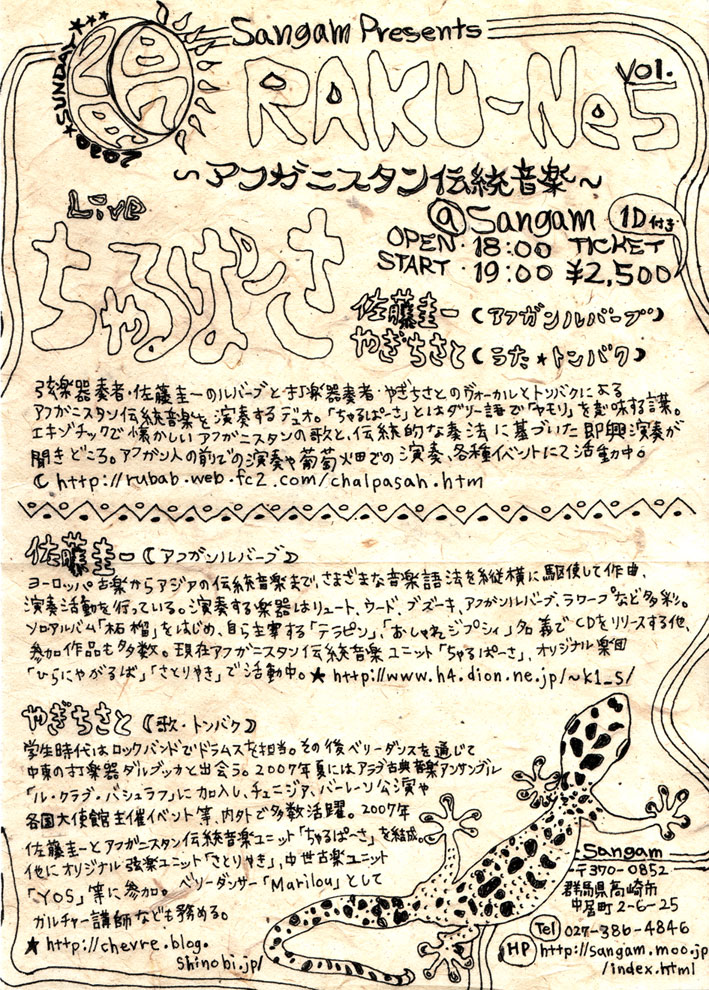 Sangam Presents
RAKU-Ne Vol.5
SUNDAY
2010
～アフガニスタン伝統音楽～
Live
@Sangam 1D付き
OPEN・18:00 TICKET
START・19:00 ¥2,500
ちゃるぱーさ
佐藤圭一(アフガンルバーブ)
やぎちさと(うた★トンバク)
弦楽器奏者・佐藤圭一のルバーブと打楽器奏者・やぎちさとのヴォーカルとトンバクによる
アフガニスタン伝統音楽を演奏するデュオ。「ちゃるぱーさ」とはダリー語で「ヤモリ」を意味する言葉。
エキゾチックで懐かしいアフガニスタンの歌と、伝統的な奏法に基づいた即興演奏が
聞きどころ。アフガン人の前での演奏や葡萄畑での演奏、各種イベントにて活動中。
http://rubab.web.fc2.com/chalpasah.htm
佐藤圭一(アフガンルバーブ)
ヨーロッパ古楽からアジアの伝統音楽まで、さまざまな音楽語法を縦横に駆使して作曲、
演奏活動を行っている。演奏する楽器はリュート、ウード、ブズーキ、アフガンルバーブ、ラワープなど多彩。
ソロアルバム「柘榴」をはじめ、自ら主宰する「テラピン」、「おしゃれジプシィ」名義でCDをリリースする他、
参加作品も多数。現在アフガニスタン伝統音楽ユニット「ちゃるぱーさ」、オリジナル楽団
「ひらにやがるば」「さとりやき」で活動中。★http://www.h4.dion.ne.jp/~k1_s/
やぎちさと(歌・トンバク)
学生時代はロックバンドでドラムスを担当。その後ベリーダンスを通じて
中東の打楽器ダルブッカと出会う。2007年夏にはアラブ古典音楽アンサンブル
「ル・クラブ・バシュラフ」に加入し、チュニジア、バーレーン公演や
各国大使館主催イベント等、内外で多数活躍。2007年
佐藤圭一とアフガニスタン伝統音楽ユニット「ちゃるぱーさ」を結成。
他にオリジナル弦楽ユニット「さとりやき」、中世古楽ユニット
「YOS」等に参加。ベリーダンサー「Marilou」として
カルチャー講師なども務める。
★http://chevre.blog.
shinobi.jp/
Sangam
〒370-0852
群馬県高崎市
中居町2-6-25
Tel 027-386-4846
HP http://sangam.moo.jp
/index.html